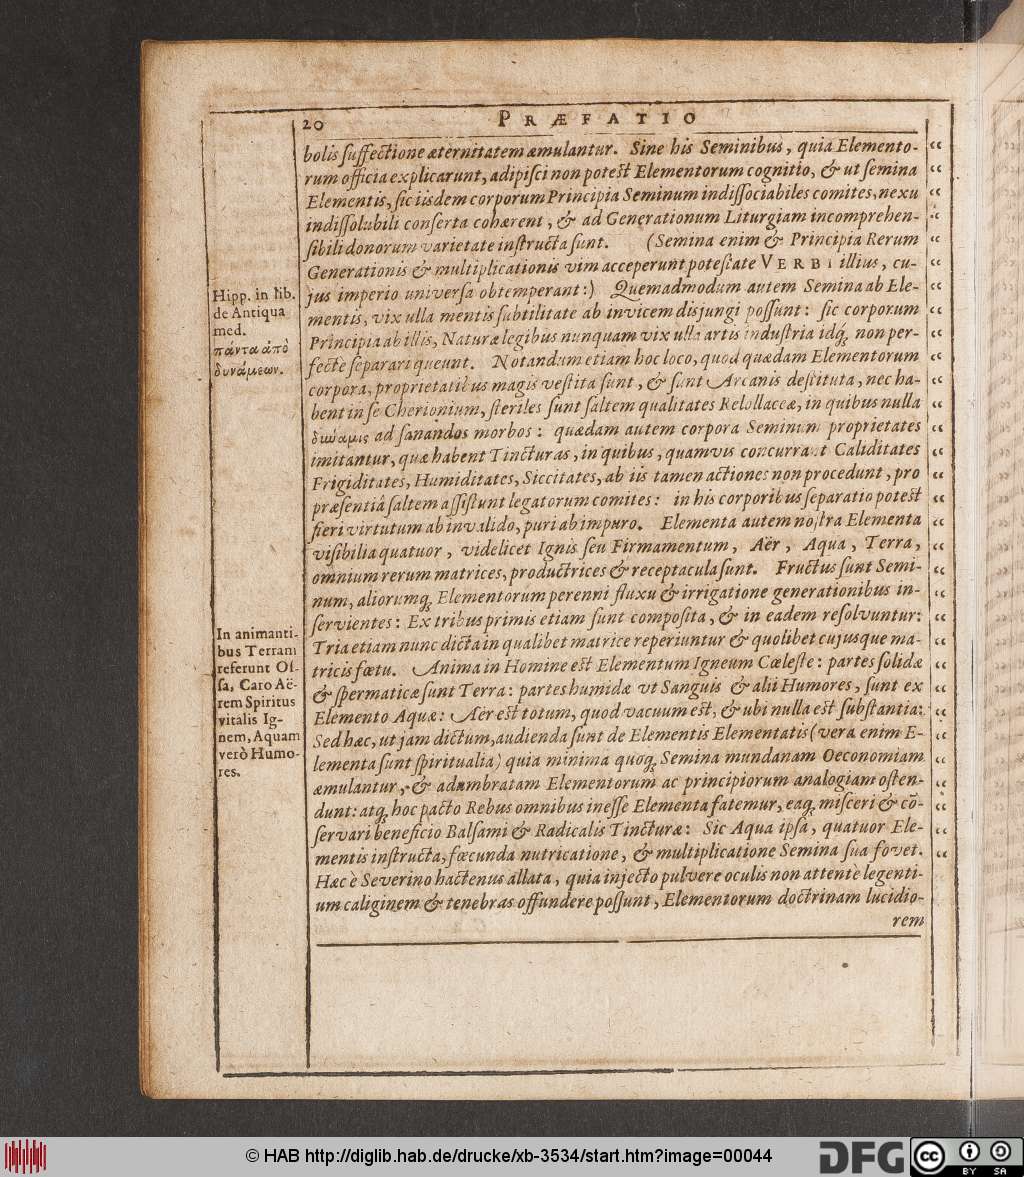 20
PRÆFATIO
bolis suffectione æternitatem æmulantur. Sine his Seminibus, quia Elemento-
rum officia explicarunt, adipisci non potest Elementorum cognitio, & ut semina
Elementis, sic iisdem corporum Principia Seminum indissociabiles comites, nexu
indissolubili conserta cohærent, & ad Generationum Liturgiam incomprehen-
sibili donorum varietate instructa sunt. (Semina enim & Principia Rerum
Generationis & multiplicationis vim acceperunt potestate VERBI illius, cu-
jus imperio universa obtemperant:) Quemadmodum autem Semina ab Ele-
mentis, vix ulla mentis subtilitate ab invicem disjungi possunt: sic corporum
Principia ab illis, Naturæ legibus nunquam vix ulla artis industria idq́; non per-
fectè separari queunt. Notandum etiam hoc loco, quod quædam Elementorum
corpora, proprietatibus magis vestita sunt, & sunt Arcanis destituta, nec ha-
bent in se Cherionium, steriles sunt saltem qualitates Relollaceæ, in quibus nulla
δυνάμις ad sanandos morbos: quædam autem corpora Seminum proprietates
imitantur, quæ habent Tincturas, in quibus, quamvis concurrant Caliditates
Frigiditates, Humiditates, Siccitates, ab iis tamen actiones non procedunt, pro
præsentiâ saltem assistunt legatorum comites: in his corporibus separatio potest
fieri virtutum ab invalido, puri ab impuro. Elementa autem nostra Elementa
visibilia quatuor, videlicet Ignis seu Firmamentum, Aër, Aqua, Terra,
omnium rerum matrices, productrices & receptacula sunt. Fructus sunt Semi-
num, aliorumq; Elementorum perenni fluxu & irrigatione generationibus in-
servientes: Ex tribus primis etiam sunt composita, & in eadem resolvuntur:
Tria etiam nunc dicta in qualibet matrice reperiuntur & quolibet cujusque ma-
tricis fœtu. Anima in Homine est Elementum Igneum Cæleste: partes solidæ
& spermaticæ sunt Terra: partes humidæ vt Sanguis & alii Humores, sunt ex
Elemento Aquæ: Aër est totum, quod vacuum est, & ubi nulla est substantia:
Sed hæc, ut jam dictum, audienda sunt de Elementis Elementatis (vera enim E-
lementa sunt spiritualia) quia minima quoq; Semina mundanam Oeconomiam
æmulantur, & adumbratam Elementorum ac principiorum analogiam osten-
dunt: atq; hoc pacto Rebus omnibus inesse Elementa fatemur, eaq; misceri & cō-
servari beneficio Balsami & Radicalis Tincturæ: Sic Aqua ipsa, quatuor Ele-
mentis instructa, fœcunda nutricatione, & multiplicatione Semina sua fovet.
Hæc è Severino hactenus allata, quia injecto pulvere oculis non attentè legenti-
um caliginem & tenebras offundere possunt, Elementorum doctrinam lucidio-
rem
Hipp. in lib.
de Antiqua
med.
πάντα ἀπὸ
δυνάμεων.
In animanti-
bus Terram
referunt Os-
sa, Caro Aë-
rem Spiritus
vitalis Ig-
nem, Aquam
verò Humo-
res.
© HAB http://diglib.hab.de/drucke/xb-3534/start.htm?image=00044
DFG
cc BY SA